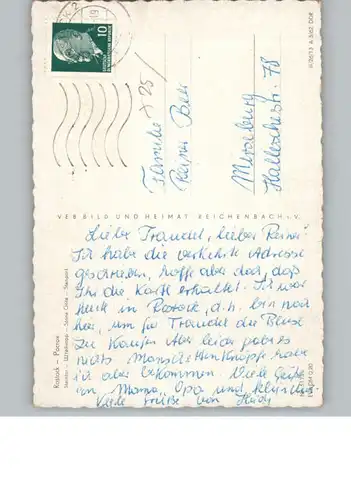 10
DEUTSCHE DEMOKRATISCHE REPUBLIK
Familie
Reiner
Merseburg
Hallesche str. 78
VEB BILD UND HEIMAT REICHENBACH i. V.
Liebe Traudel, lieber Reiner!
Ich habe die verkehrte Adresse
geschrieben, hoffe aber doch, daß
Ihr die Karte erhaltet. Ich war
heut in Rostock, d. h. bin noch
hier, um für Traudel die Bluse
zu kaufen. Aber leider gab es
nichts. Manschettenknöpfe habe
ich aber bekommen. Viele Grüße
an Mama, Opa und
Viele Grüße von
Rostock –